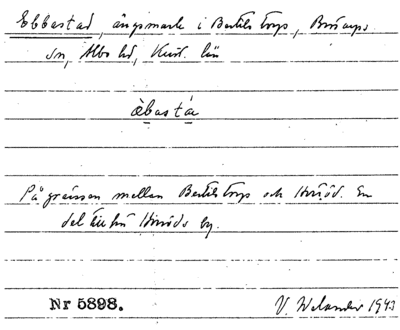 Ebbestad, ängsmark i Bertilstorp, Brösarps
sn, Albo hd, Krist. län
àbastá
På gränsen mellan Bertilstorp och Hörröd. En
del till hö Hörröds by.
Nr 5898.
V. Welander 1943